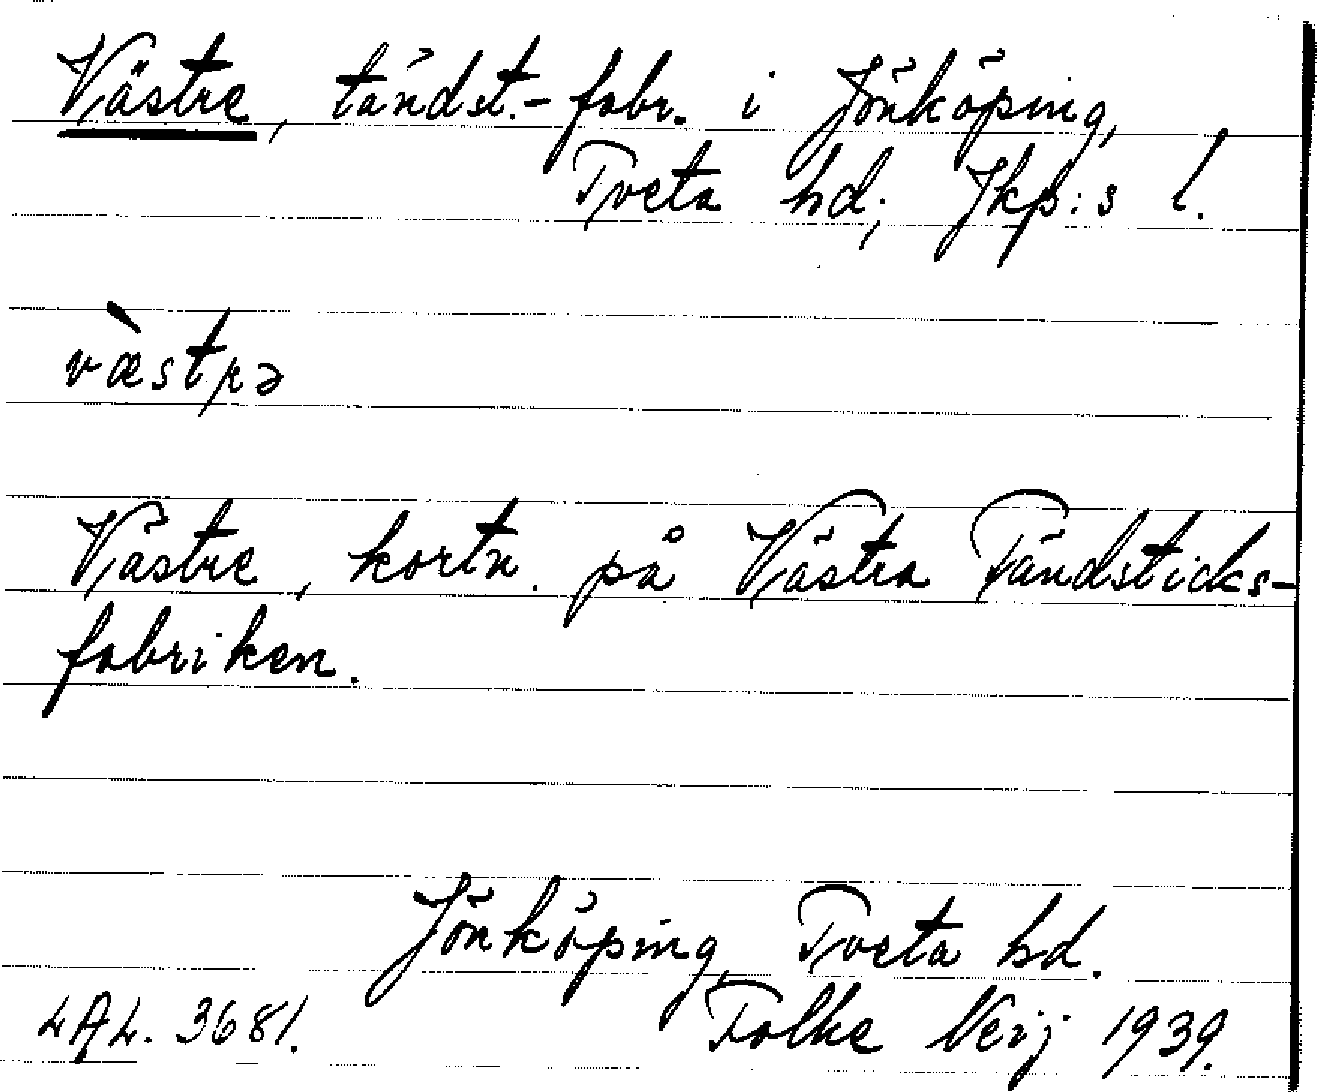 Västre, tändst.-fabr. i Jönköping,
Tveta hd; Jkp:s l.
v̀æstrə
Västre, kortn. på Västra Tändsticks-
fabriken.
Jönköping, Tveta hd.
LAL. 3681. Folke Neij 1939.